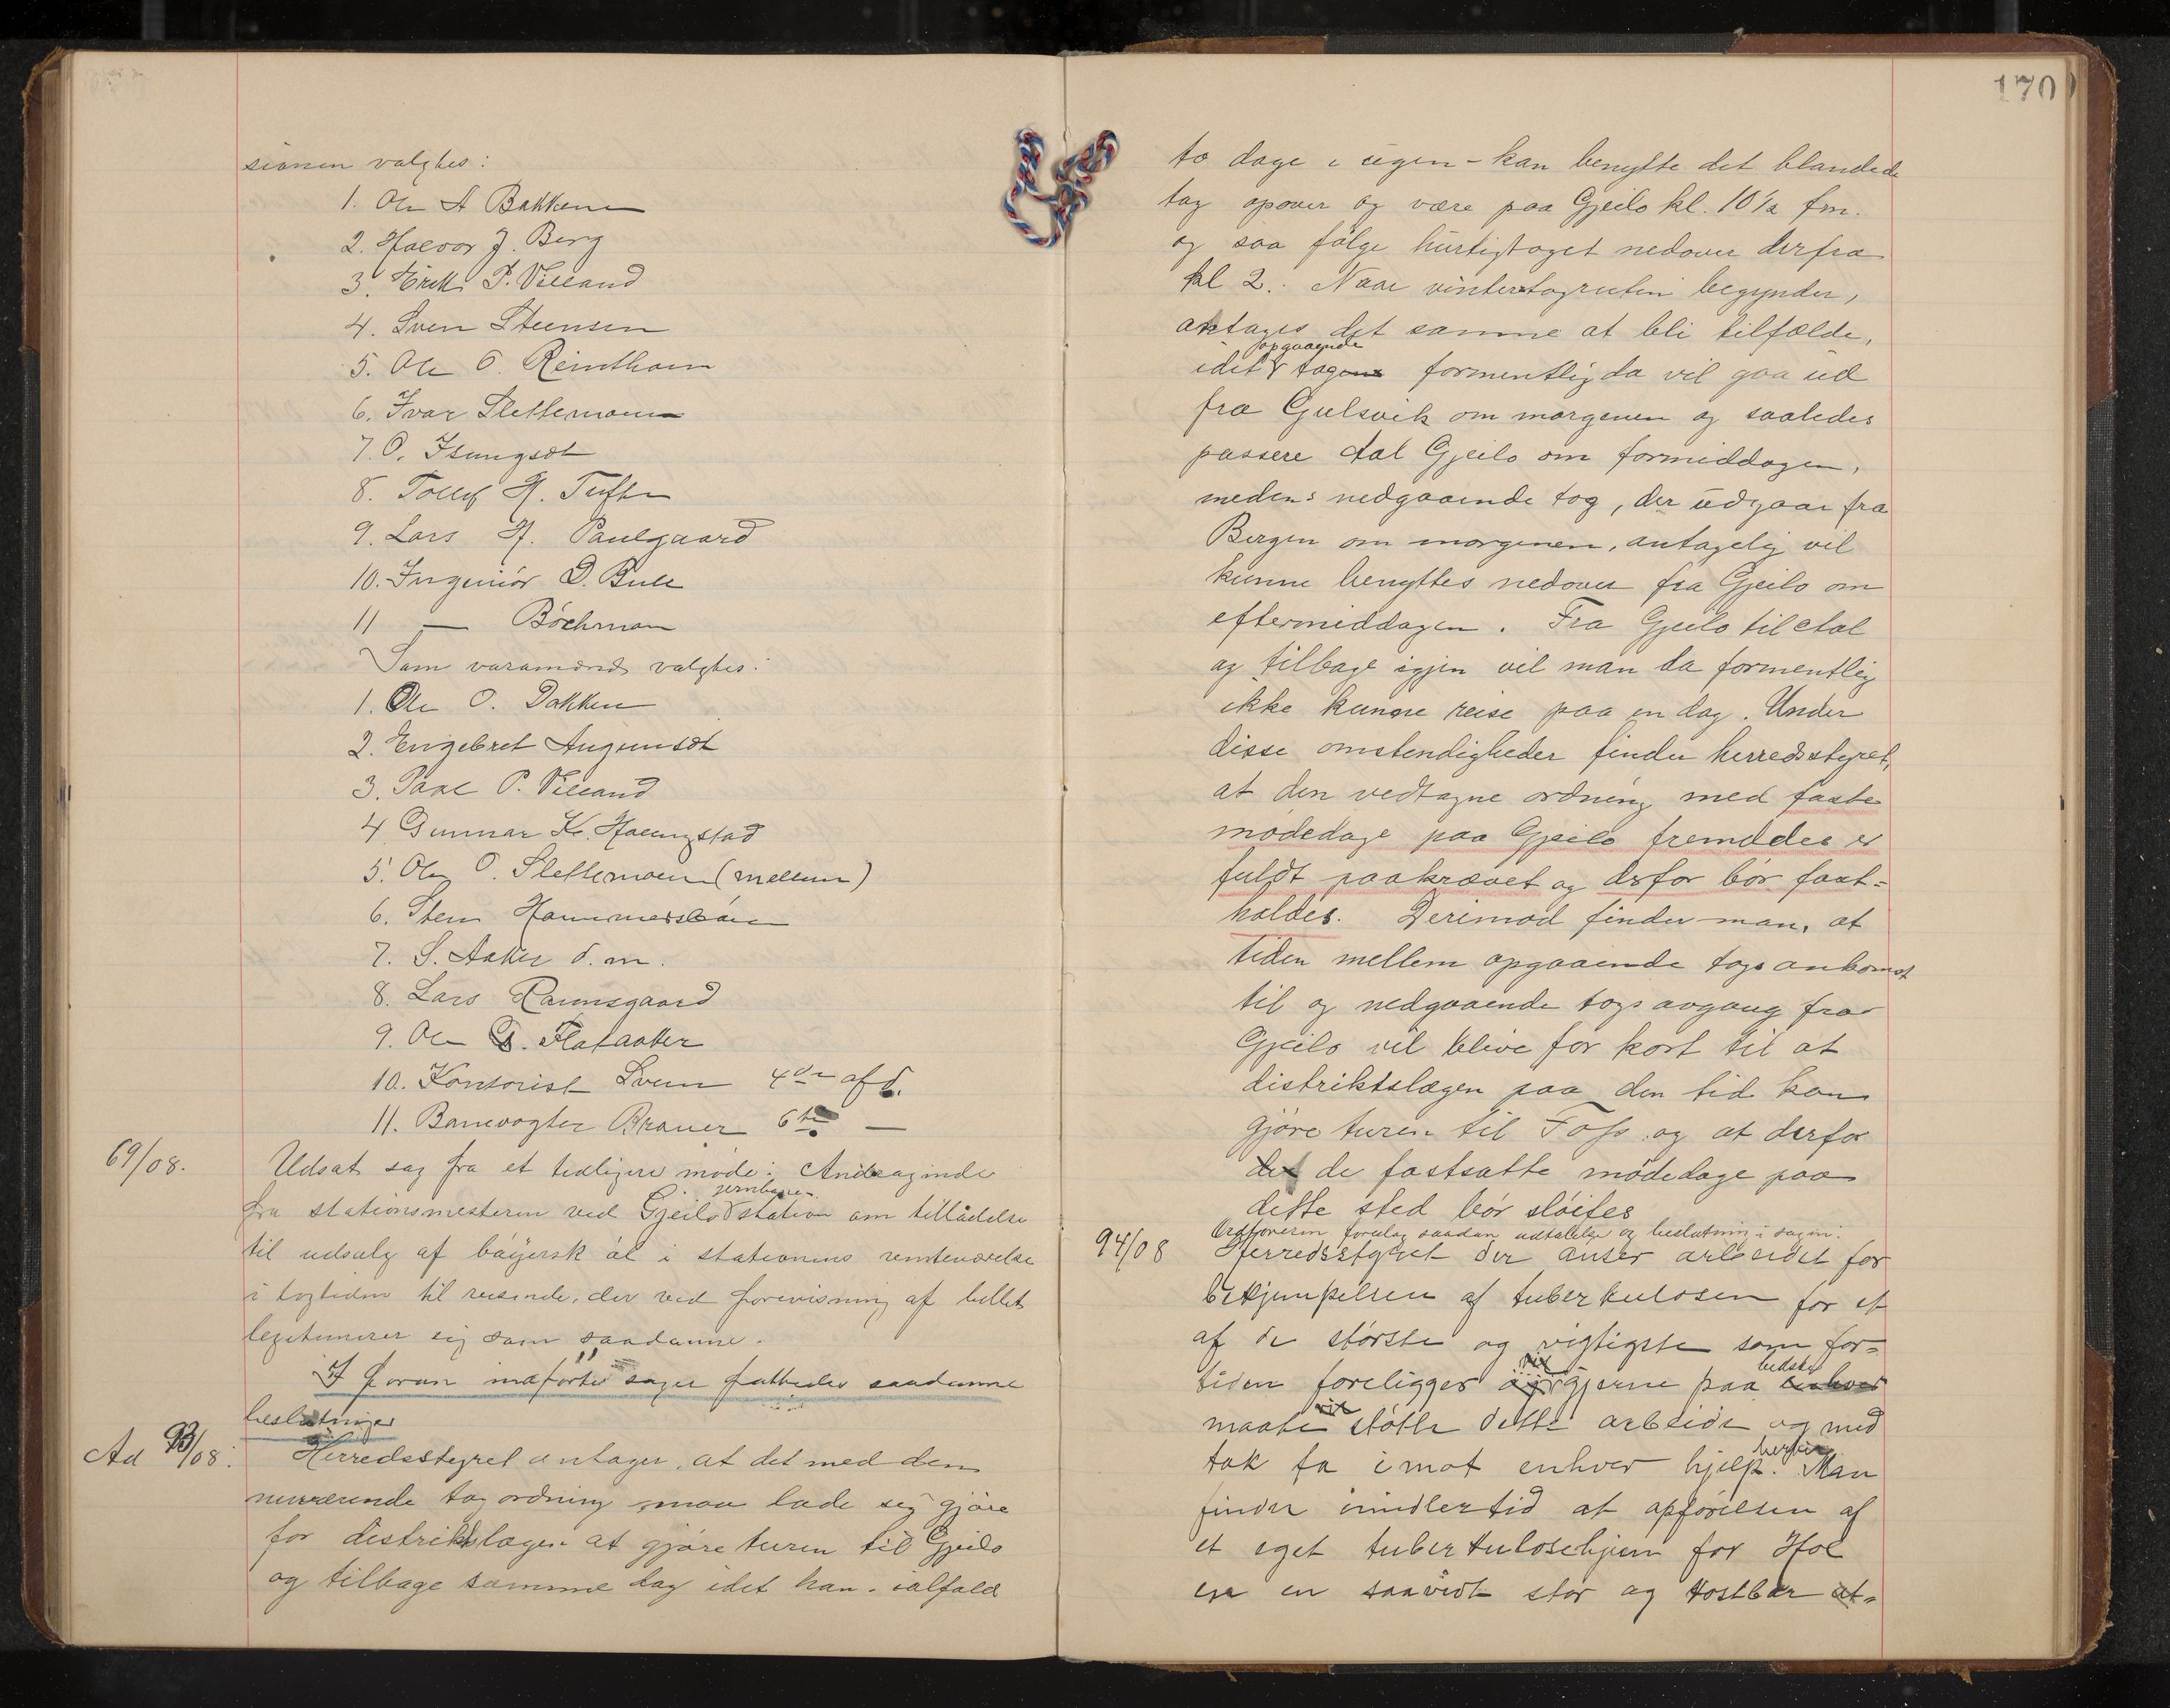 170
sionen valgtes:
1. Ole A Bakken
2. Halvor J. Berg
3. Erik P. Villand
4. Sven Steensen
5. Ole O.
6. Ivar Slettemoen
7. O.
8. Tollef H. Tufte
9. Lars H. Paulgaard
10. Ingeniör D. Bull
11 — Böchman
Som varamænd valgtes:
1. Ole O. Bakken
2. Engebret
3. Paul P. Villand
4. Gunnar K.
5. Ole O. Slettemoen (mellem)
6. Sten Hammersböen
7. S. Aaker d. m.
8. Lars Raunsgaard
9. Ole Flataaker
10. Kontorist Sven 4de afd.
11. Banevogter Braner 6te —
69/08.
Udsat sag fra et tidligere möde: Andragende
fra stationsmesteren ved Gjeilo jernbane-station om tilladelse
til udsalg af bayersk öl i stationens venteværelse
i togtiden til reisende, der ved forevisning af billet
legitimerer sig som saadanne.
I foran indförte sager fattedes saadanne
beslutninger
Ad 93/08:
Herredsstyret antager, at det med den
nuværende togordning maa lade sig gjöre
for distriktslægen at gjöre turen til Gjeilo
og tilbage samme dag idet han - ialfald
to dage i ugen - kan benytte det blandede
tog opover og være paa Gjeilo kl. 10 1/2 fm.
og saa fölge hurtigtoget nedover derfra
kl 2. Naar vintertogruten begynder,
antages det samme at bli tilfælde,
idet opgaaende tog formentlig da vil gaa ud
fra Gulsvik om morgenen og saaledes
passere Aal Gjeilo om formiddagen,
medens nedgaaende tog, der udgaar fra
Bergen om morgenen, antagelig vil
kunne benyttes nedover fra Gjeilo om
eftermiddagen. Fra Gjeilo til Aal
og tilbage igjen vil man da formentlig
ikke kunne reise paa en dag. Under
disse omstendigheder finder herredsstyret,
at den vedtagne ordning med faste
mödedage paa Gjeilo fremdeles er
fuldt paakrævet og derfor bör fast-
holdes. Derimod finder man, at
tiden mellem opgaaende togs ankomst
til og nedgaaende togs avgang fra
Gjeilo vil blive for kort til at
distriktslægen paa den tid kan
gjöre turen til Foss og at derfor
de fastsatte mödedage paa
dette sted bör slöifes
Ordföreren foreslog saadan udtalelse og beslutning i sagen:
94/08
Herredsstyret der anser arbeidet for
bekjempelsen af tuberkulosen for et
af de störste og vigtigste som for-
tiden foreligger vil gjerne paa bedste
maate stötte dette arbeide og med
tak ta imot enhver hjelp herfor. Man
finder imidlertid at opförelsen af
et eget tuberkulosehjem for Hol
er en saavidt stor og kostbar at-